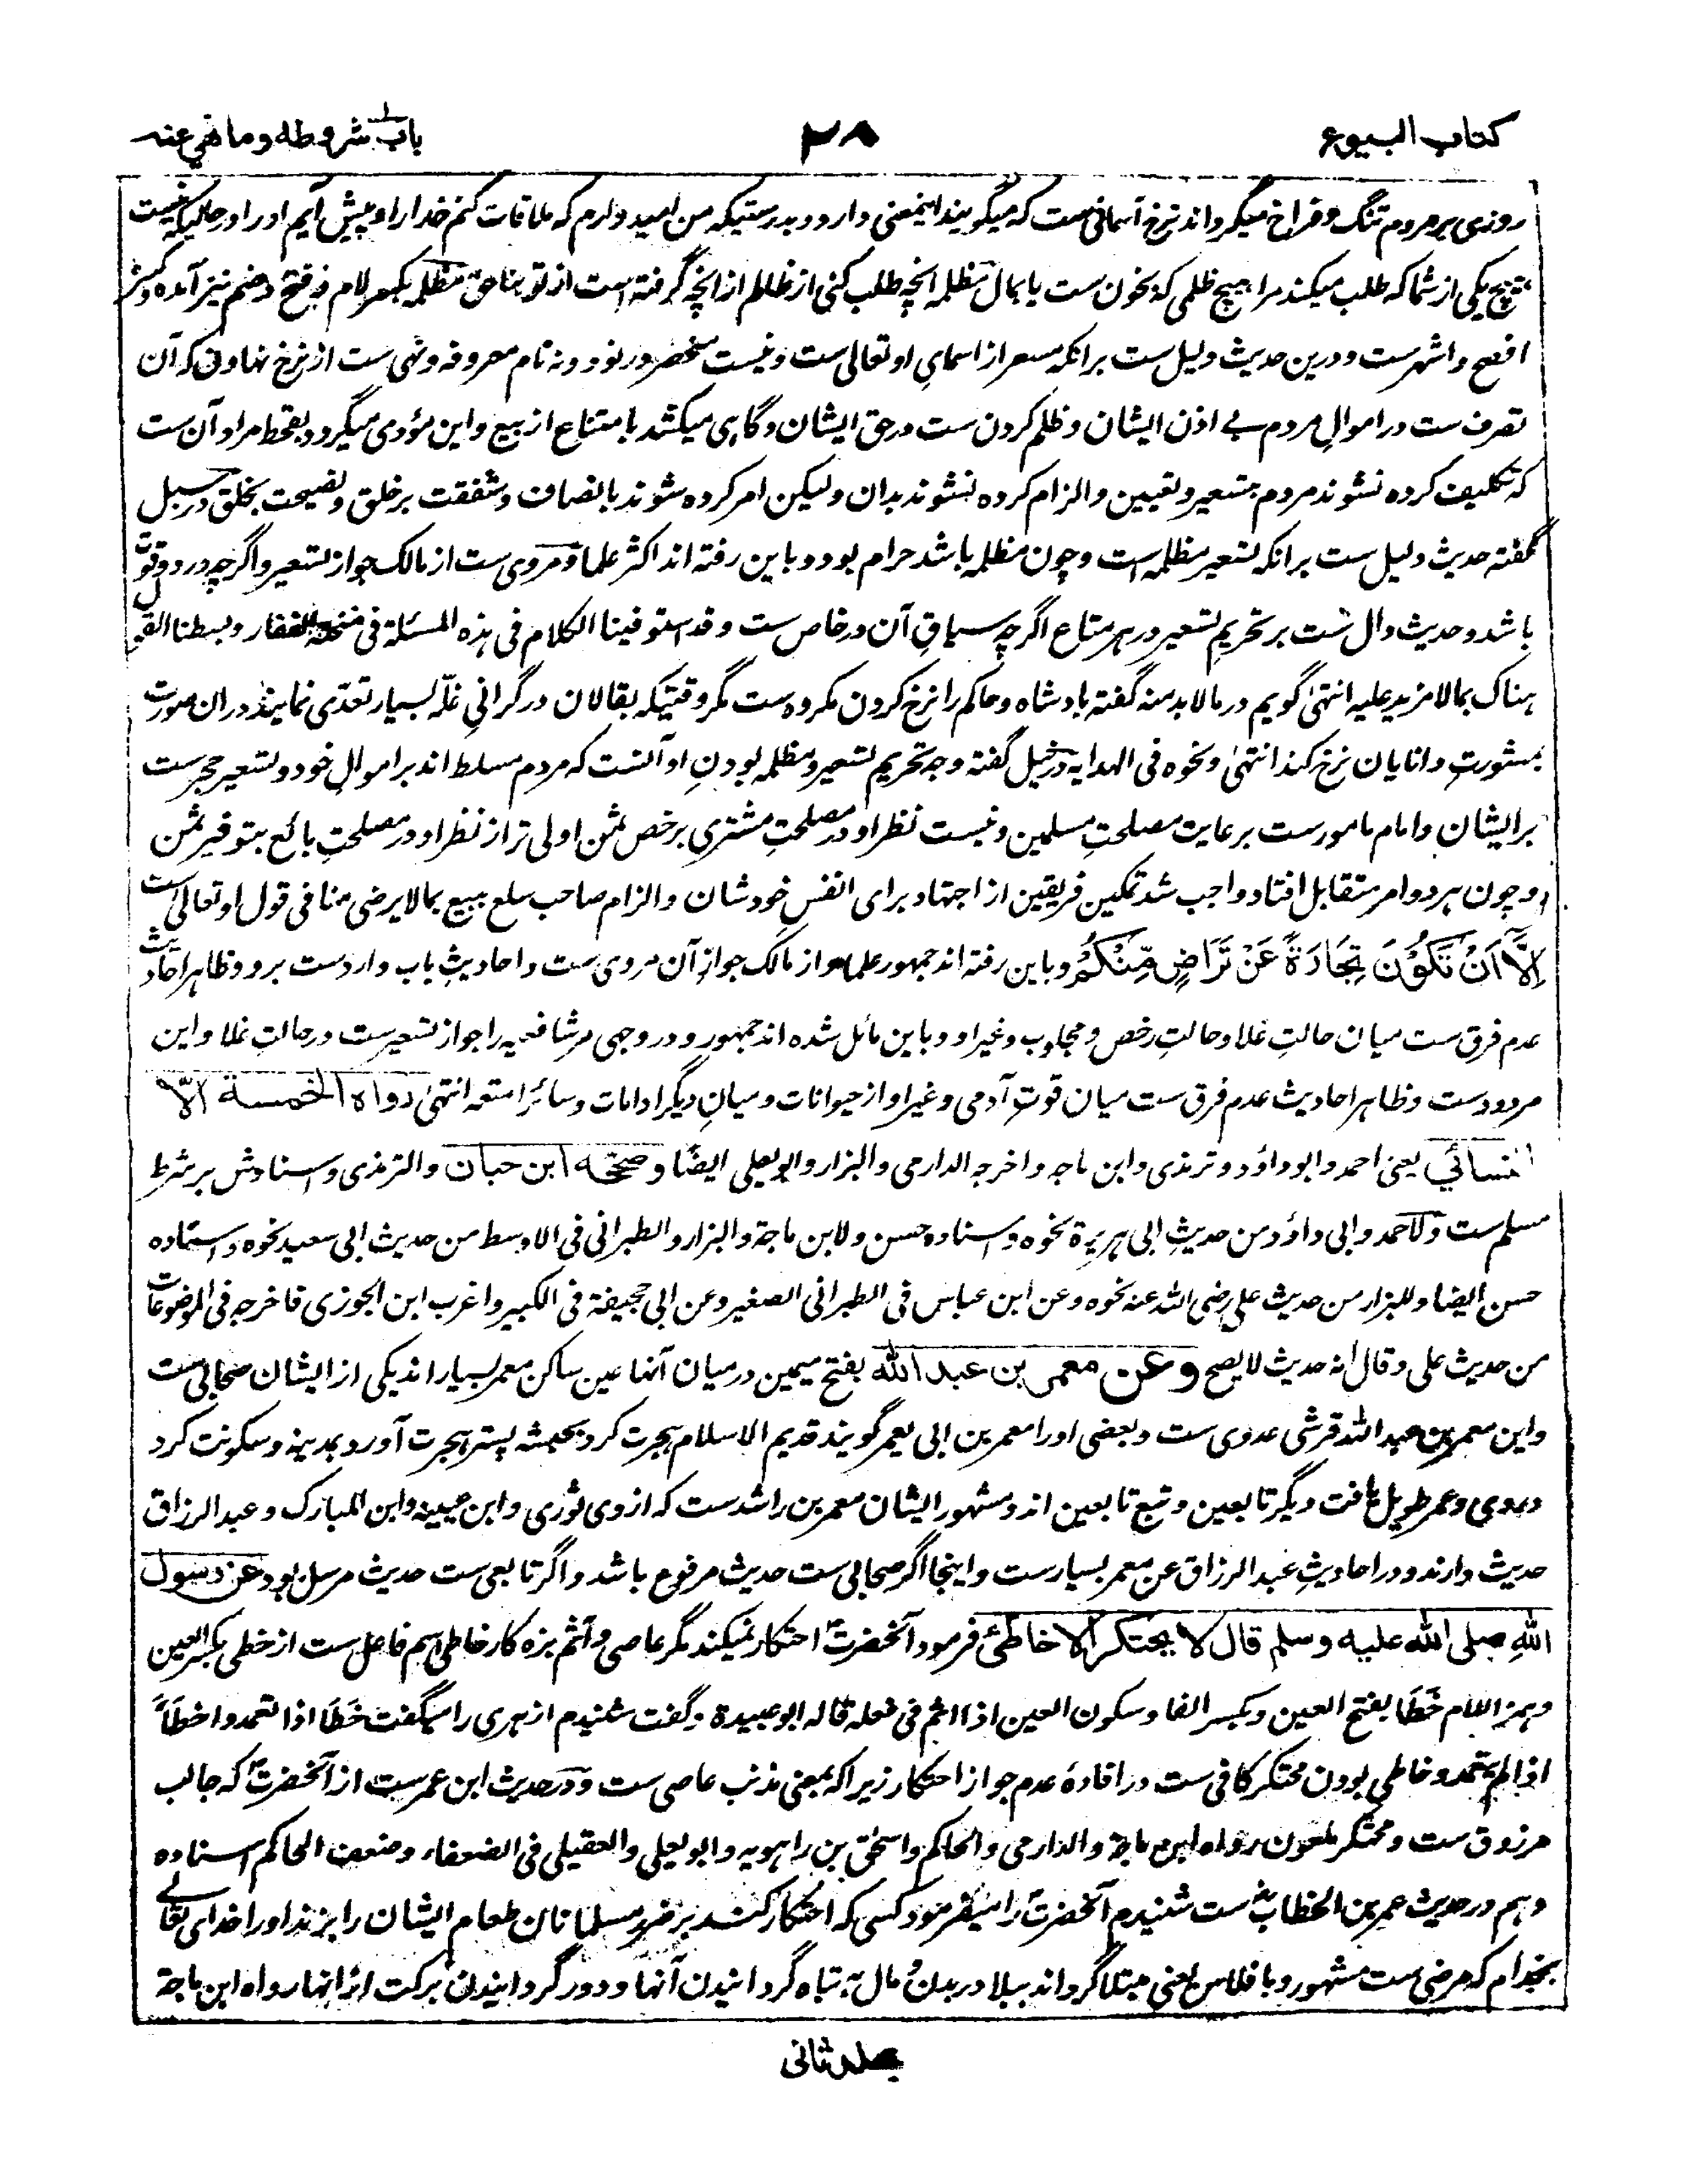 کتاب البیوع
۲۸
باب شروطه وما نهي عنه
روزی بر مردم تنگ و فراخ میگرداند نرخ آسمانی ست که میگویند اینمعنی دارد و بدرستیکه من امید دارم که ملاقات کنم خدا را و پیش آیم او را در حالیکه نیست
هیچ یکی از شما که طلب میکند مرا هیچ ظلمی که بخون ست یا بمال مظلمه آنچه طلب کنی از ظالم از آنچه گرفته است از تو بناحق مظلمه بکسر لام و فتح و ضم نیز آمده و کسر
افصح و اشهرست و درین حدیث دلیل ست برانکه مسعر از اسمای او تعالی ست و نیست منحصر در نود و نه نام معروفه و نهی ست از نرخ نهادن که آن
تصرف ست در اموال مردم بے اذن ایشان و ظلم کردن ست در حق ایشان و گاہی میکشد بامتناع از بیع و این مؤدی میگردد بقحط مراد آن ست
که تکلیف کرده نشوند مردم بتسعیر و تعیین و الزام کرده نشوند بدان ولیکن امر کرده شوند بانصاف و شفقت بر خلق و نصیحت بخلق در سبل
گفته حدیث دلیل ست برانکه تسعیر مظلمه است و چون مظلمه باشد حرام بود و باین رفته اند اکثر علما و مروی ست از مالک جواز تسعیر و اگرچه در دو قوت
باشد و حدیث دال ست بر تحریم تسعیر در هر متاع اگرچه سیاق آن در خاص ست و قد استوفینا الکلام فی هذه المسئلة فی منحة الغفار و بسطنا القول
هناک بمالا مزید علیه انتهیٰ گویم در مالابد منه گفته بادشاه و حاکم را نرخ کردن مکروه ست مگر وقتیکه بقالان در گرانیِ غلّه بسیار تعدّی نمایند در ان صورت
بمشورتِ دانایان نرخ کند انتهیٰ و نحوه فی الهدایه در نیل گفته وجه تحریم تسعیر و مظلمه بودنِ او آنست که مردم مسلط اند بر اموالِ خود و تسعیر حجرست
بر ایشان و امام مامورست برعایت مصلحتِ مسلمین و نیست نظر او در مصلحتِ مشتری برخص ثمن اولی تر از نظر او در مصلحتِ بائع بتوفیر ثمن
و چون هر دو امر متقابل افتاد واجب شد تمکین فریقین از اجتهاد برای انفسِ خودشان و الزام صاحب سلع ببیع بمالا یرضی منافی قول او تعالی است
اِلَّآ اَنْ تَکُوْنَ تِجَارَةً عَنْ تَرَاضٍ مِّنْکُمْ و باین رفته اند جمهور علماء و از مالک جوازِ آن مروی ست و احادیثِ باب وارد ست برو و ظاہر احادیث
عدم فرق ست میان حالتِ غلا و حالتِ رخص و مجلوب و غیر او و باین مائل شده اند جمهور و در وجهی مر شافعیه را جواز تسعیرست در حالتِ غلا و این
مردودست و ظاہر احادیث عدم فرق ست میان قوتِ آدمی و غیر او از حیوانات و میانِ دیگر ادامات و سائر امتعه انتهیٰ رواه الخمسة الّا
النسائي یعنی احمد و ابو داؤد و ترمذی و ابن ماجه و اخرجه الدارمی و البزار و ابو یعلی ایضًا و صححه ابن حبان و الترمذی و اسنادش بر شرط
مسلم ست ولاحمد و ابی داؤد من حدیثِ ابی هریرة نحوه و اسناده حسن ولابن ماجة و البزار و الطبرانی فی الاوسط من حدیث ابی سعید نحوه و اسناده
حسن ایضا و للبزار من حدیث علی رضی الله عنه نحوه و عن ابن عباس فی الطبرانی الصغیر و عن ابی جحیفة فی الکبیر و اغرب ابن الجوزی فاخرجه فی الموضوعات
من حدیث علی و قال انه حدیث لا یصح وعن معمر بن عبد الله بفتح میمین درمیان آنها عین ساکن معمر بسیار اند یکی از ایشان صحابی ست
و این معمر بن عبد الله قرشی عدوی ست و بعضی او را معمر بن ابی یعمر گویند قدیم الاسلام هجرت کرد بحبشه پستر هجرت آورد بمدینه و سکونت کرد
دروی و عمر طویل یافت دیگر تابعین و تبع تابعین اند و مشهور ایشان معمر بن راشد ست که از وی ثوری و ابن عیینه و ابن المبارک و عبد الرزاق
حدیث دارند و در احادیثِ عبد الرزاق عن معمر بسیارست و اینجا اگر صحابی ست حدیث مرفوع باشد و اگر تابعی ست حدیث مرسل بود عن رسول
اللهِ صلی الله علیه وسلم قال لا یحتکر الا خاطئ فرمود آنحضرتؐ احتکار نمیکند مگر عاصی و آثم بزه کار خاطی اسم فاعل ست از خطی بکسر العین
و همز اللام خَطَا بفتح العین و بکسر الفا و سکون العین اذا اثم فی فعله قاله ابو عبیدة و گفت شنیدم ازهری را میگفت خَطَا اذا تعمد و اخطَأَ
اذا لم یتعمد و خاطی بودن محتکر کافی ست در افادهٔ عدم جواز احتکار زیراکه بمعنی مذنب عاصی ست و در حدیث ابن عمرست از آنحضرتؐ که جالب
مرزوق ست و محتکر ملعون رواه ابن ماجة و الدارمی و الحاکم و اسحٰق بن راهویه و ابو یعلی و العقیلی فی الضعفاء و ضعف الحاکم اسناده
و هم در حدیث عمر بن الخطابؓ ست شنیدم آنحضرتؐ را میفرمود کسی که احتکار کند بر ضرر مسلمانان طعام ایشان را بزند او را خدای تعالے
بجذام که مرضی ست مشهور و بافلاس یعنی مبتلا گرداند ببلا در بدن و مال به تباه گردانیدن آنها و دور گردانیدن برکت از انها رواه ابن ماجة
جلد ثانی